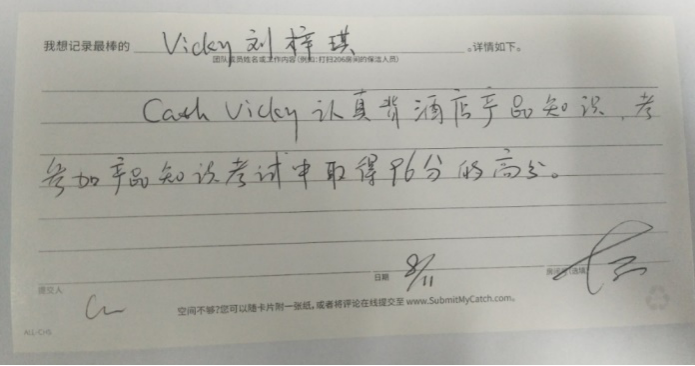 我想记录最棒的 Vicky 刘梓琪 。详情如下。
团队成员姓名或工作内容(例如:打扫206房间的保洁人员)
Catch Vicky 认真背酒店产品知识,考
参加产品知识考试中取得96分的高分。
提交人 日期 8/11
空间不够?您可以随卡片附一张纸,或者将评论在线提交至 www.SubmitMyCatch.com。
ALL-CHS